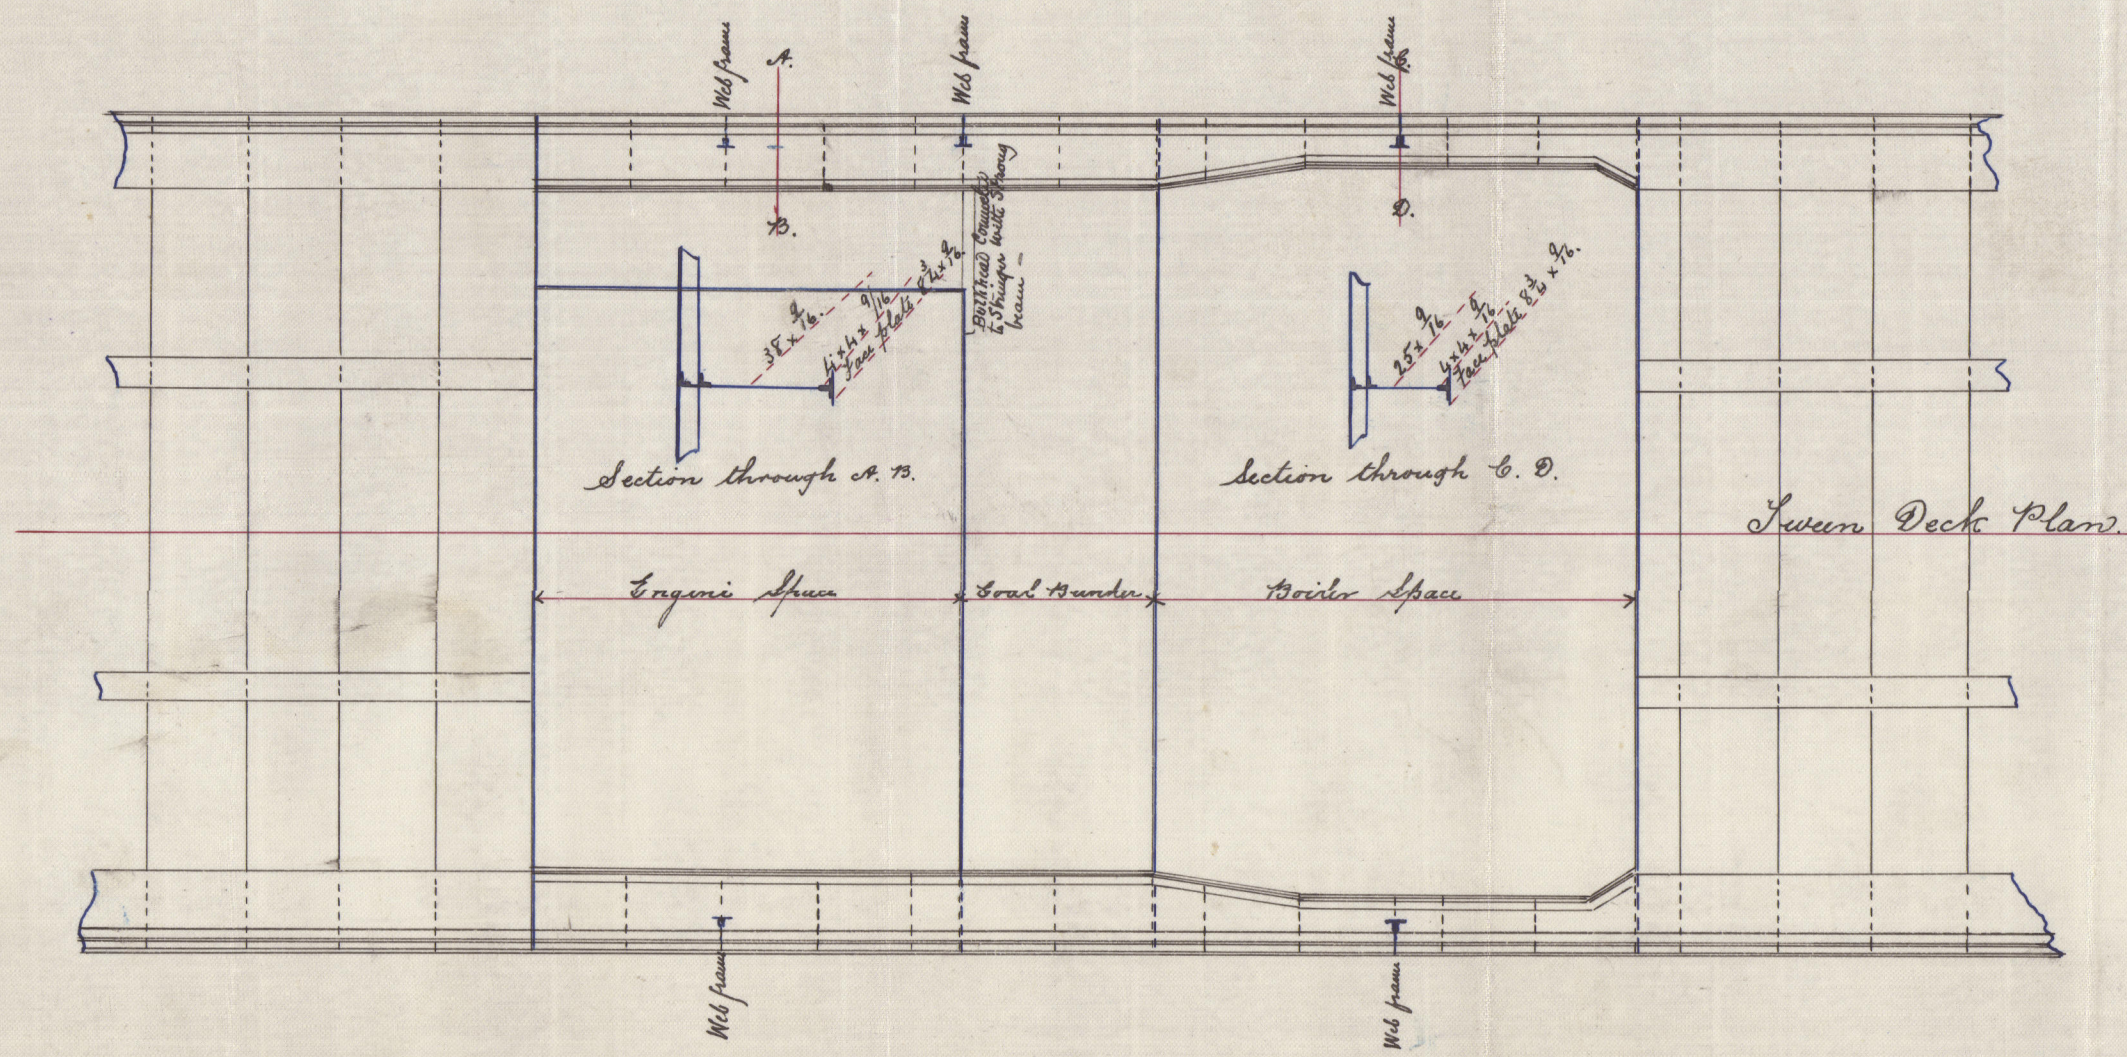 Web frame
A.
Web frame
Web frame
B.
D.
Bulkhead Connected
to Stringer with Strong
beam -
38 x 9/16.
4 x 4 x 9/16
face plate 8 3/4 x 9/16.
25 x 9/16
4 x 4 x 9/16
face plate 8 3/4 x 9/16.
Section through A. B.
Section through C. D.
Tween Deck Plan.
Engine Space
Coal Bunker
Boiler Space
Web frame
Web frame